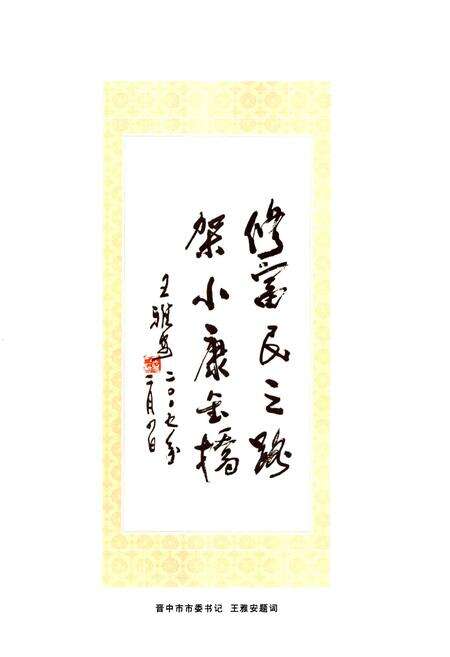 修富民之路
架小康金桥
王雅安
二〇〇七年
二月四日
晋中市市委书记 王雅安题词